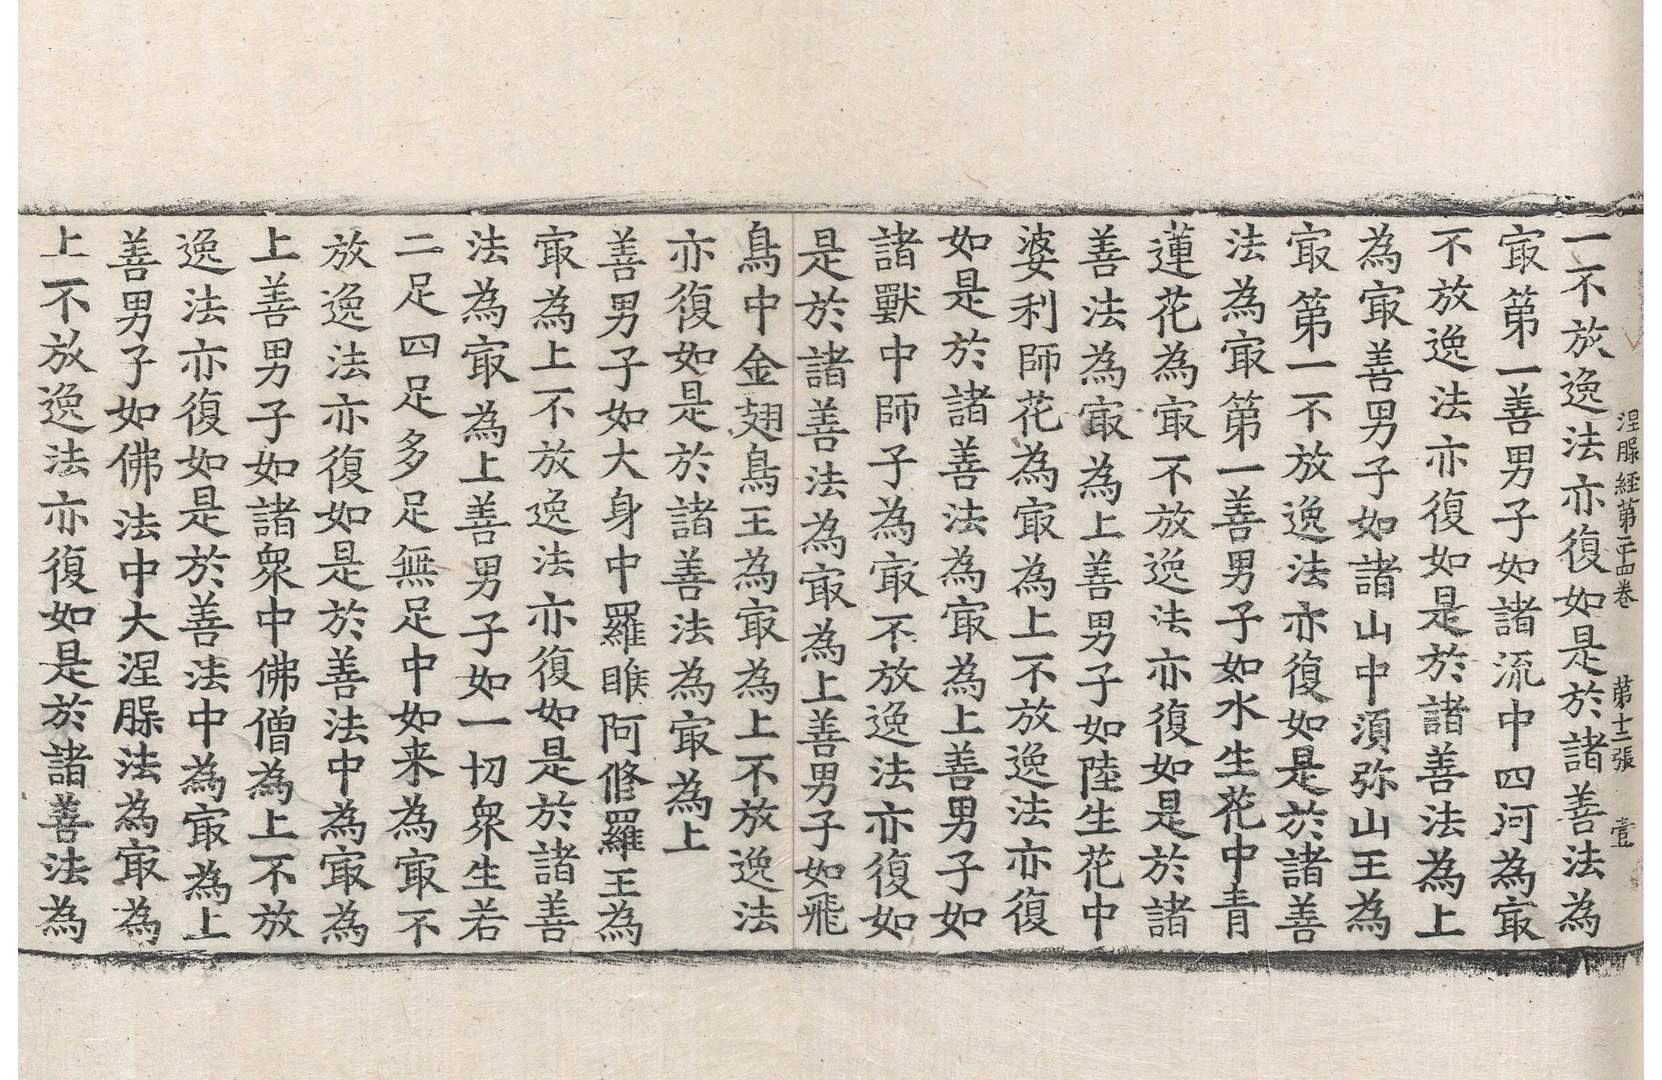 涅槃経第二十四卷 第十二張 壹
一不放逸法亦復如是於諸善法為
㝡第一善男子如諸流中四河為㝡
不放逸法亦復如是於諸善法為上
為㝡善男子如諸山中湏弥山王為
㝡第一不放逸法亦復如是於諸善
法為㝡第一善男子如水生花中青
蓮花為㝡不放逸法亦復如是於諸
善法為㝡為上善男子如陸生花中
婆利師花為㝡為上不放逸法亦復
如是於諸善法為㝡為上善男子如
諸獸中師子為㝡不放逸法亦復如
是於諸善法為㝡為上善男子如飛
鳥中金翅鳥王為㝡為上不放逸法
亦復如是於諸善法為㝡為上
善男子如大身中羅睺阿修羅王為
㝡為上不放逸法亦復如是於諸善
法為㝡為上善男子如一切衆生若
二足四足多足無足中如来為㝡不
放逸法亦復如是於善法中為㝡為
上善男子如諸衆中佛僧為上不放
逸法亦復如是於善法中為㝡為上
善男子如佛法中大涅槃法為㝡為
上不放逸法亦復如是於諸善法為